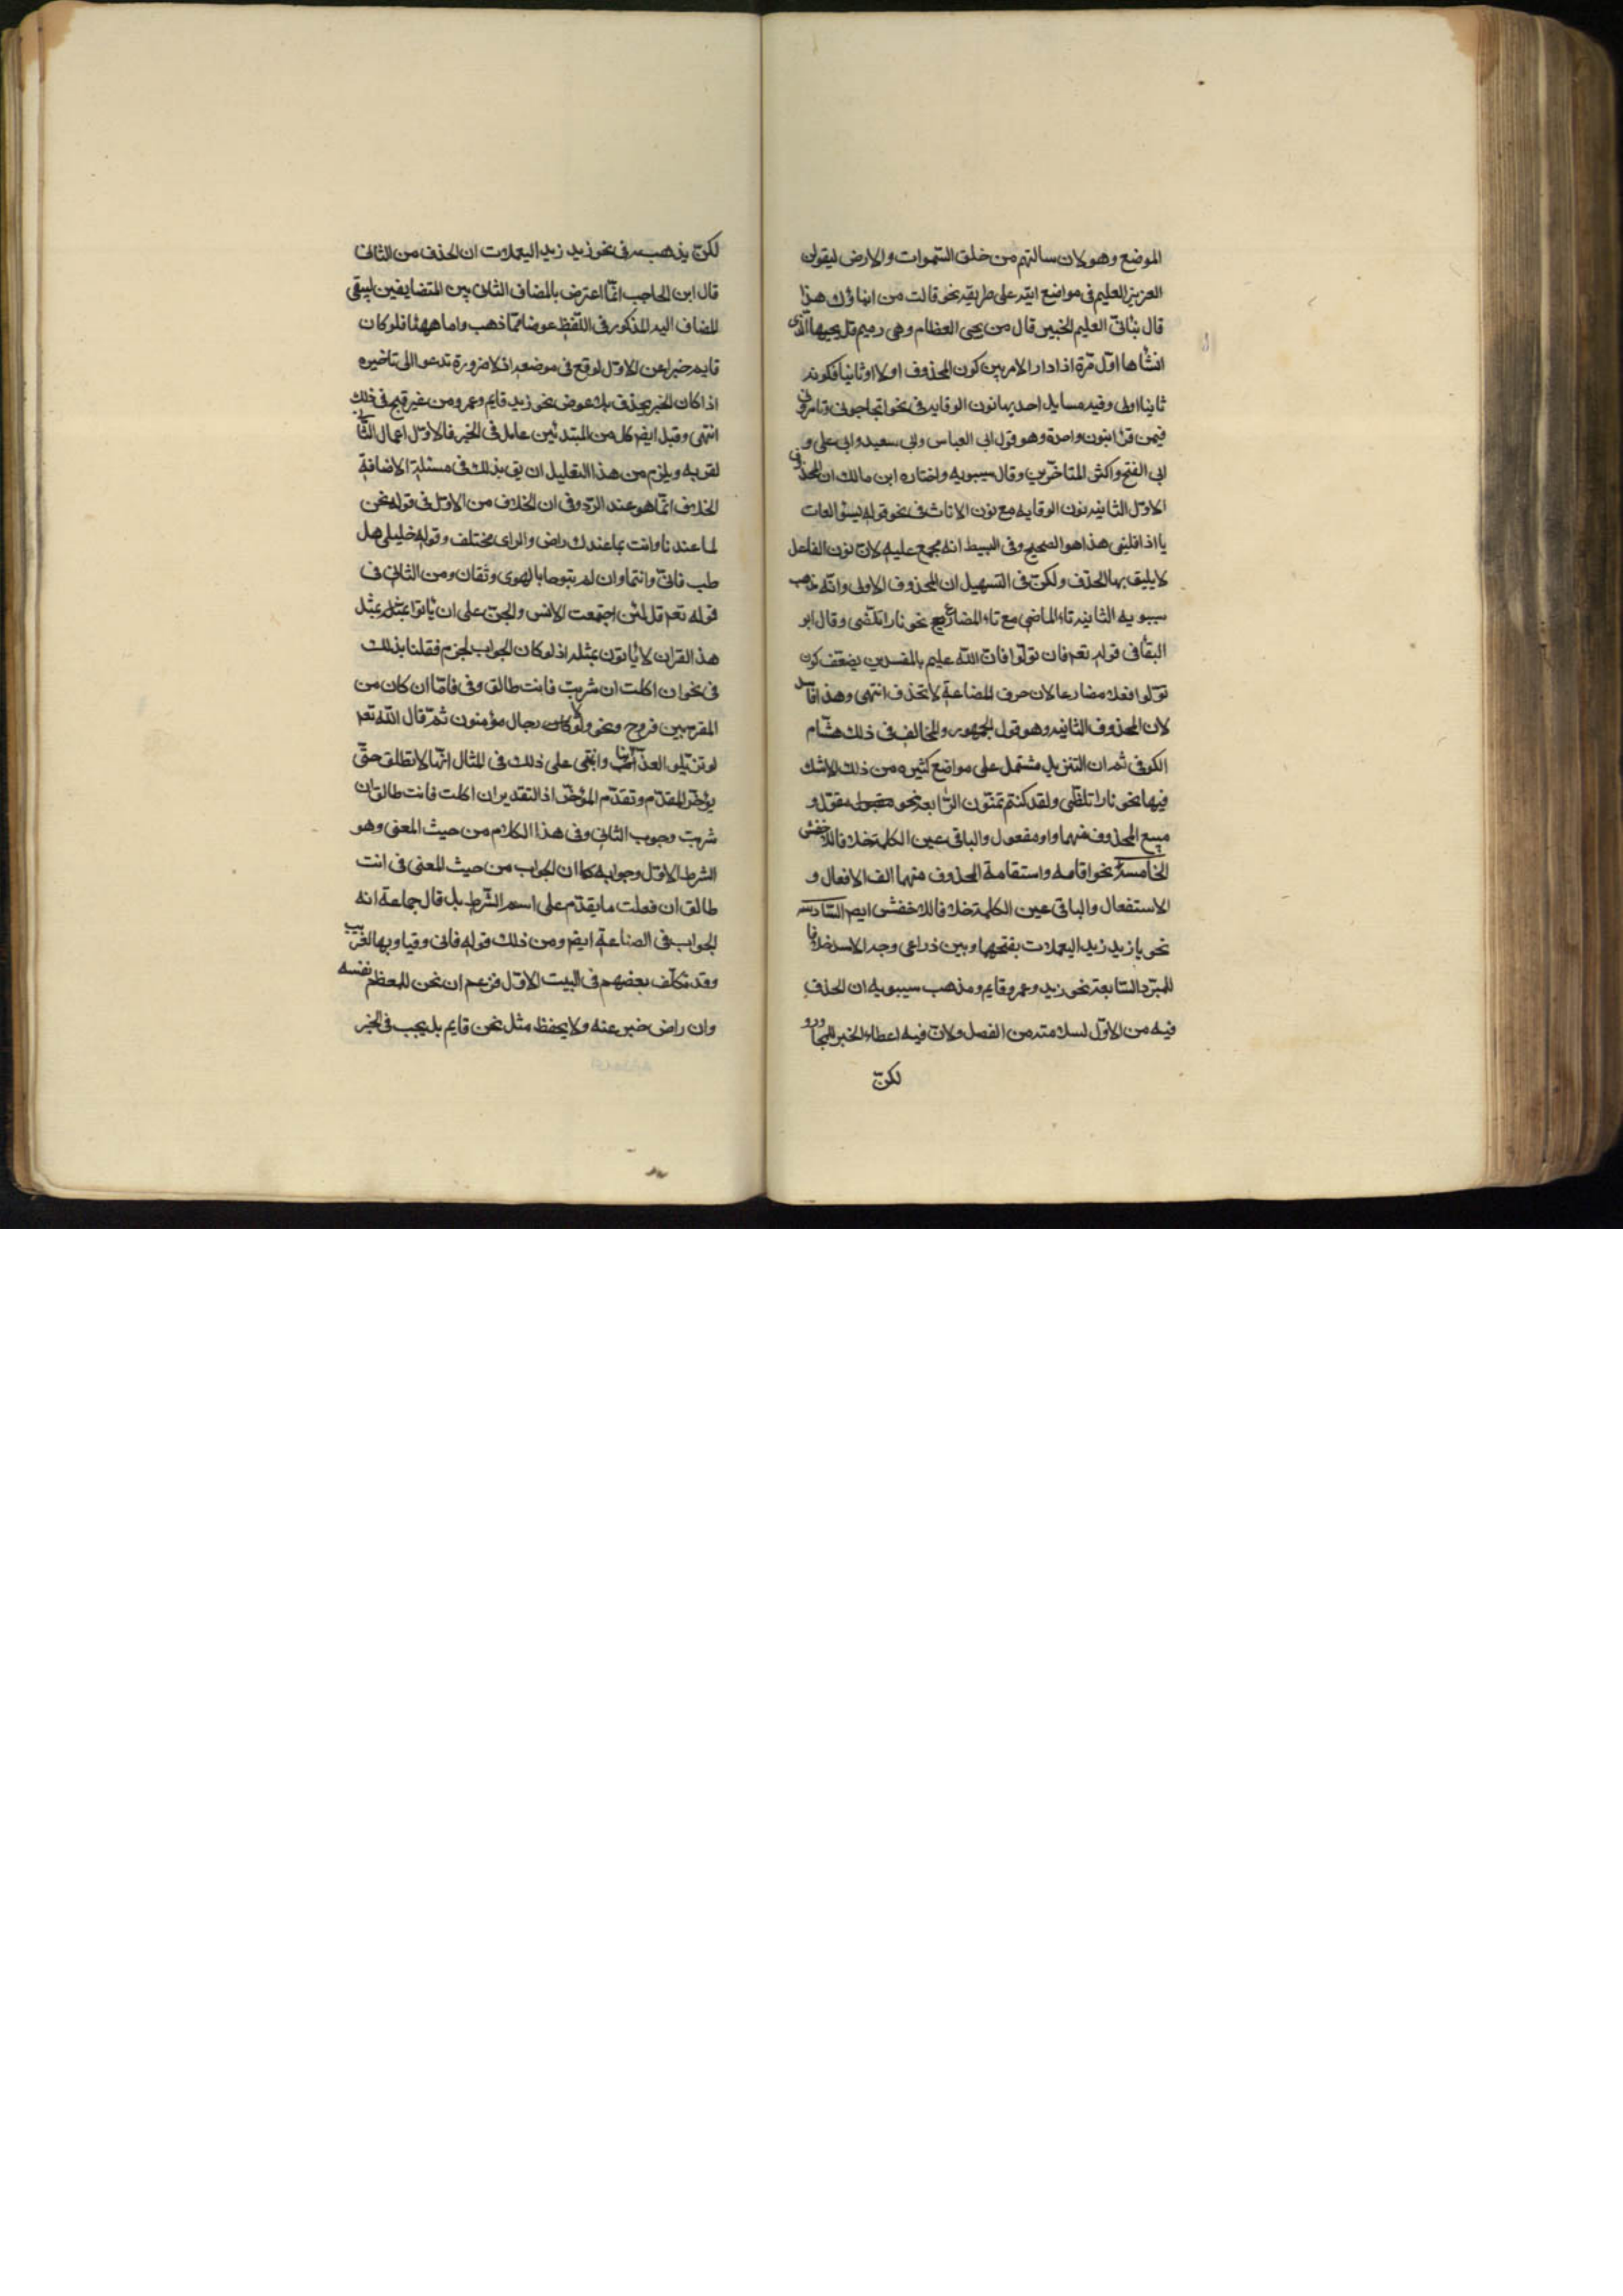 الموضع وهو لان سالتهم من خلق السموات والارض ليقولن
العزيز العليم فى مواضع اتية على طريقته نحو قالت من انباؤك هذا
قال نبأنى العليم الخبير قال من يحيى العظام وهى رميم قل يحييها الذى
انشاها اول مرة اذا دار الامر بين كون المحذوف اولا او ثانيا فكونه
ثانيا اولى وفيه مسايل احديها نون الوقايه فى نحو اتحاجونى وتامرونى
فيمن قرا بنون واحدة وهو قول ابى العباس وابى سعيد وابى على و
ابى الفتح واكثر المتاخرين وقال سيبويه واختاره ابن مالك ان المحذوف
الاول الثانيه نون الوقايه مع نون الاناث فى نحو قوله يسؤ الغات
يا اذا فلينى هذا هو الصحيح وفى البسيط انه مجمع عليه لان نون الفاعل
لا يليق بها الحذف ولكن فى التسهيل ان المحذوف الاولى وانه مذهب
سيبويه الثانيه تاء الماضى مع تاء المضارع نحو نارا تلظى وقال ابو
البقا فى قوله تعم فان تولوا فان الله عليم بالمفسدين يضعف كون
تولوا فعلا مضارعا لان حرف المضاعة لا تحذف انتهى وهذا فاسد
لان المحذوف الثانيه وهو قول الجمهور والمخالف فى ذلك هشام
الكوفى ثم ان التنزيل مشتمل على مواضع كثيره من ذلك لا شك
فيها نحو نارا تلظى ولقد كنتم تمنون الرابعة نحو مقول و
مبيع المحذوف منهما واو مفعول والباقى عين الكلمة خلافا للاخفش
الخامسة نحو اقامه واستقامة المحذوف منهما الف الافعال و
الاستفعال والباقى عين الكلمة خلافا للاخفش ايض السادسه
نحو يا زيد زيد اليعملات بفتحهما وبين ذراعى وجه الاسد خلافا
للمبرد السابعة نحو زيد وعمرو قايم ومذهب سيبويه ان الحذف
فيه من الاول لسلامته من الفصل ولان فيه اعطاء الخبر للمجاور و
لكن
لكن يذهب سه فى نحو زيد زيد اليعملات ان الحذف من الثانى
قال ابن الحاجب انما اعترض بالمضاف الثانى بين المتضايفين ليبقى
المضاف اليه المذكور فى اللفظ عوضا مما ذهب واما ههنا فلو كان
قايم خبرا عن الاول لوقع فى موضعه اذ لا ضرورة تدعو الى تاخيره
اذا كان الخبر يحذف بلا عوض نحو زيد قايم وعمرو من غير قبح فى ذلك
انتهى وقيل ايض كل من المبتدئين عامل فى الخبر فالاول اعمال الثانى
لقربه ويلزم من هذا التعليل ان يق بذلك فى مسئلة الاضافة
الخلاف انما هو عند التردد فى ان الخلاف من الاول فى قوله نحن
لما عندنا وانت بما عندك راض والراى مختلف وقوله خليلى هل
طب فانى وانتما وان لم تبوحا بالهوى دنفان ومن الثانى فى
قوله تعم قل لئن اجتمعت الانس والجن على ان يأتوا بمثل
هذا القران لا يأتون بمثله اذ لو كان الجواب لجزم فقلنا بذلك
فى نحو ان اكلت ان شربت فانت طالق وفى فاما ان كان من
المقربين فروح ونحو ولولا رجال مؤمنون ثم قال الله تعم
لو تزيلوا لعذبنا وانبنى على ذلك فى المثال انها لا تطلق حتى
يؤخر المقدم وتقدم المؤخر اذ التقدير ان اكلت فانت طالق ان
شربت وجوب الثانى وفى هذا الكلام من حيث المعنى وهو
الشرط الاول وجوابه كما ان الجواب من حيث المعنى فى انت
طالق ان فعلت ما يقدم على اسم الشرط بل قال جماعة انه
الجواب فى الصناعة ايض ومن ذلك قوله فانى وقيار بها لغريب
وقد تكلف بعضهم فى البيت الاول فزعم ان نحن للمعظم نفسه
وان راض خبر عنه ولا يحفظ مثل نحن قايم بل يجب فى الخبر